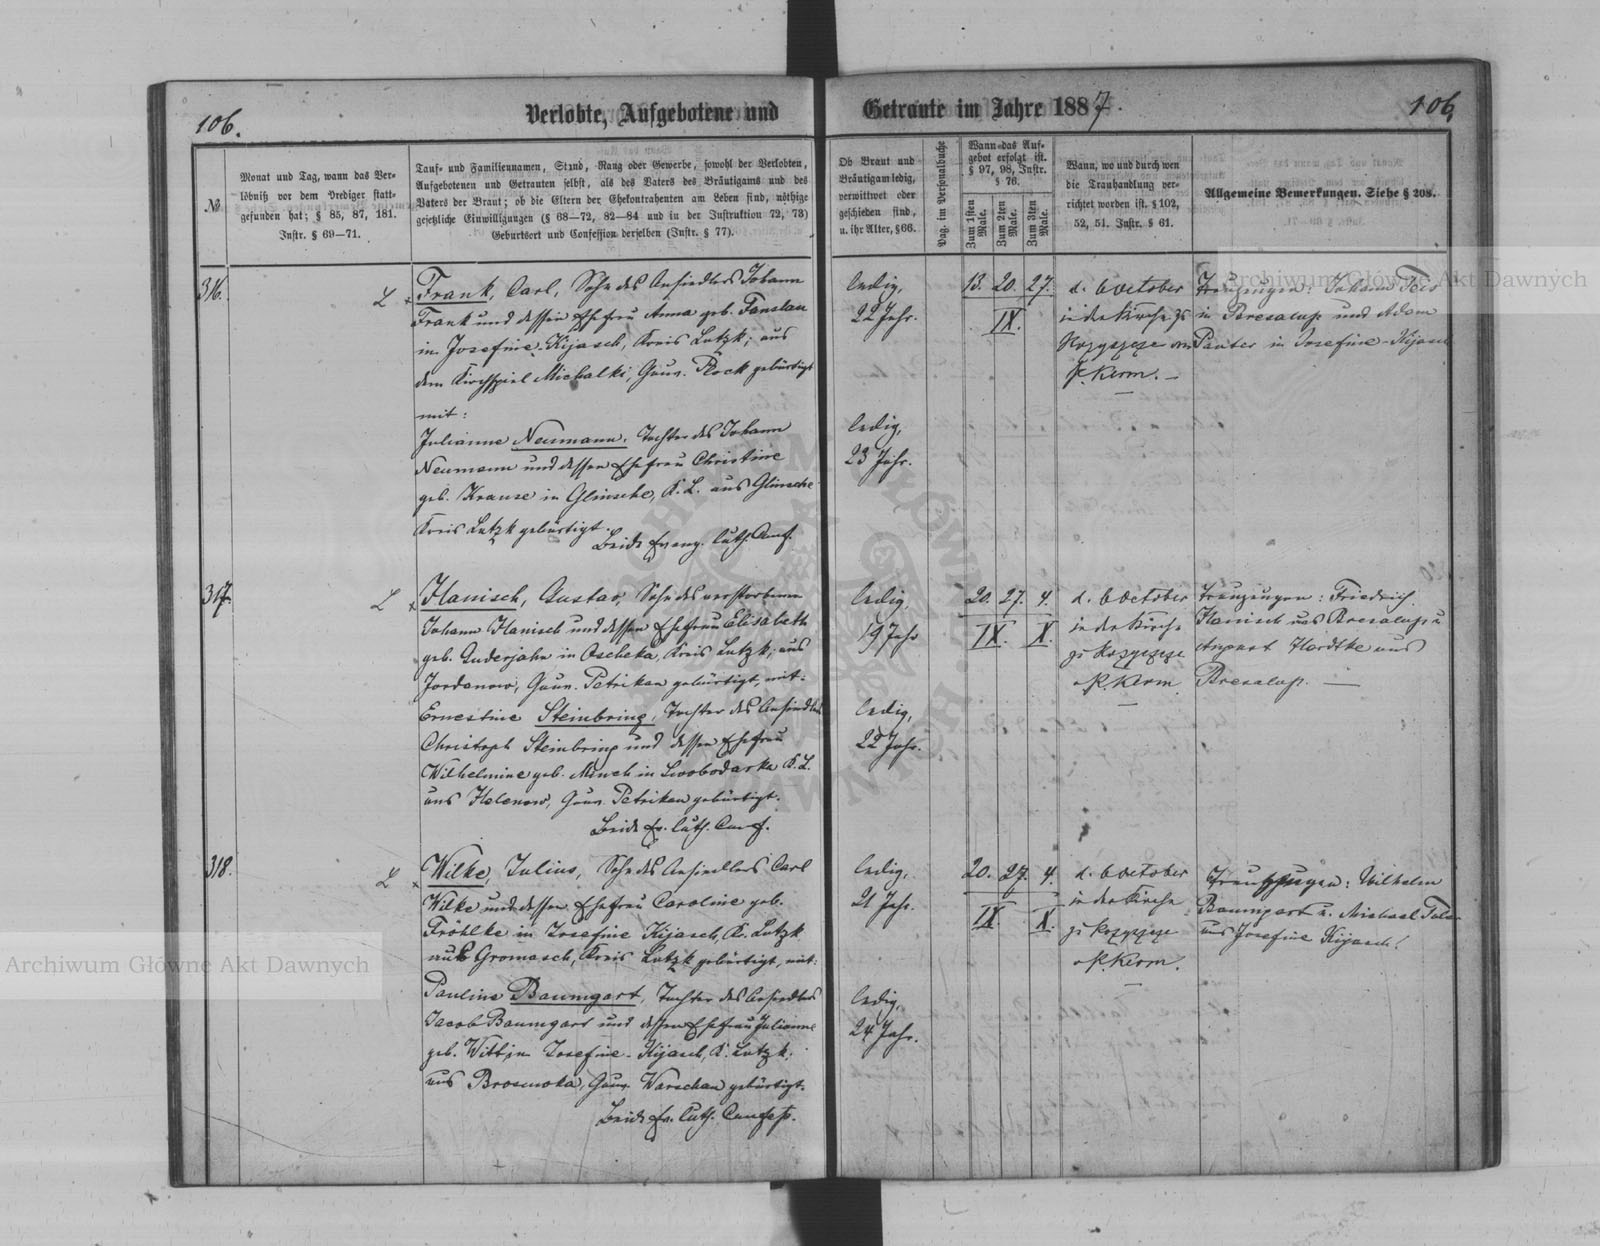 106.
Verlobte, Aufgebotene und
Getraute im Jahre 1887.
106.
№
Monat und Tag, wann das Ver-
löbniß vor dem Prediger statt-
gefunden hat; § 85, 87, 181.
Instr. § 69—71.
Tauf- und Familiennamen, Stand, Rang oder Gewerbe, sowohl der Verlobten,
Aufgebotenen und Getrauten selbst, als des Vaters des Bräutigams und des
Vaters der Braut; ob die Eltern der Ehekontrahenten am Leben sind, nöthige
gesetzliche Einwilligungen (§ 68—72, 82—84 und in der Instruktion 72, 73)
Geburtsort und Confession derselben (Instr. § 77).
Ob Braut und
Bräutigam ledig,
verwittwet oder
geschieden sind,
u. ihr Alter, § 66.
Pag. im Personalbuche
Wann das Auf-
gebot erfolgt ist.
§ 97, 98, Instr.
§ 76.
Zum 1sten Male.
Zum 2ten Male.
Zum 3ten Male.
Wann, wo und durch wen
die Trauhandlung ver-
richtet worden ist. § 102,
52, 51. Instr. § 61.
Allgemeine Bemerkungen. Siehe § 208.
316.
L x Frank, Carl, Sohn des Ansiedlers Johann
Frank und dessen Ehefrau Anna geb. Fanslau
in Josefine-Kijasch, Kreis Lutzk; aus
dem Kirchspiel Michalki, Gouv. Plock gebürtigt
mit:
Julianne Neumann, Tochter des Johann
Neumann und dessen Ehefrau Christine
geb. Krause in Glinsche, K. L. aus Glinsche
Kreis Lutzk gebürtigt.
Beide Evang. luth. Conf.
ledig,
22 Jahr.
ledig,
23 Jahr.
13. 20. 27.
IX.
d. 6 October
in der Kirche zu
Rozyszcze von
P. Kerm. —
Trauzeugen: Johann
in Bresalup und Adam
Panter in Josefine-Kijasch
317.
L x Hanisch, Gustav, Sohn des verstorbenen
Johann Hanisch und dessen Ehefrau Elisabeth
geb. Anderjahn in Oscheka, Kreis Lutzk, aus
Jordanow, Gouv. Petrikau gebürtigt, mit:
Ernestine Steinbring, Tochter des Ansiedlers
Christoph Steinbring und dessen Ehefrau
Wilhelmine geb. Minch in Swobodarka K. L.
aus Helenow, Gouv. Petrikau gebürtigt.
Beide Ev. luth. Conf.
ledig.
19 Jahr
ledig,
22 Jahr.
20. 27. 4.
IX. X.
d. 6 October
in der Kirche
zu Rozyszcze
P. Kerm
Trauzeugen: Friedrich
Hanisch aus Bresalup u
August Hardtke aus
Bresalup. —
318.
L x Wilke, Julius, Sohn des Ansiedlers Carl
Wilke und dessen Ehefrau Caroline geb.
Fröhlke in Josefine Kijasch, Kr. Lutzk
aus Gromasch, Kreis Lutzk gebürtigt, mit:
Pauline Baumgart, Tochter des Ansiedlers
Jacob Baumgart und dessen Ehefrau Julianne
geb. Witt in Josefine-Kijasch, K. Lutzk,
aus Gouv. Warschau gebürtigt.
Beide Ev. luth. Confess.
ledig,
21 Jahr.
ledig,
24 Jahr.
20. 27. 4.
IX. X.
d. 6 October
in der Kirche
zu Rozyszcze
P. Kerm.
Trauzeugen: Wilhelm
Baumgart u. Michael
aus Josefine Kijasch.
Archiwum Główne Akt Dawnych
Archiwum Główne Akt Dawnych